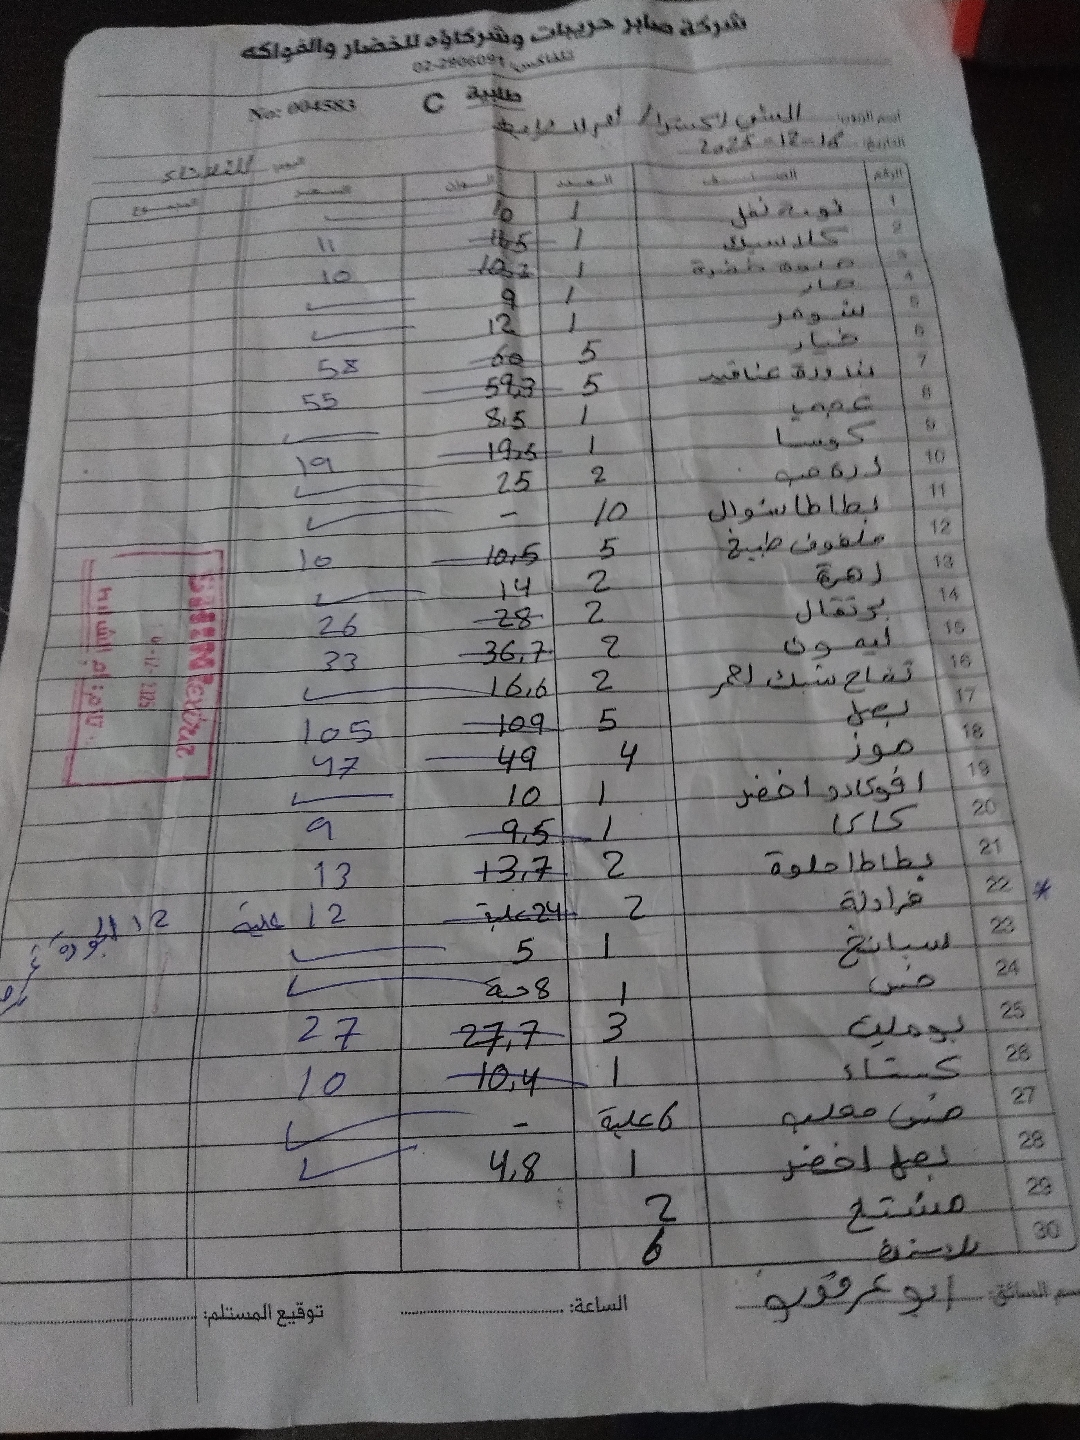 شركة صابر حريبات وشركاؤه للخضار والفواكه
تلفاكس: 02-2906091
طلبية C No: 004583
اسم الزبون: السني اكسترا / ام الشرايط
التاريخ: 16-12-2025
اليوم: الثلاثاء
الرقم الصنف العدد الوزن السعر المجموع
1 1 10
2 كلاسيك 1 11.5 11
3 1 10.2 10
4 1 9
5 شومر 1 12
6 خيار 5 60 58
7 بندورة عناقيد 5 59.3 55
8 عجمي 1 8.5
9 كوسا 1 19.5 19
10 2 25
11 بطاطا شوال 10 -
12 ملفوف طبيخ 5 10.5 10
13 زهرة 2 14
14 برتقال 2 28 26
15 ليمون 2 36.7 33
16 تفاح شبك احمر 2 16.6
17 بصل 5 109 105
18 موز 4 49 47
19 افوكادو اخضر 1 10
20 كاكا 1 9.5 9
21 بطاطا حلوة 2 13.7 13
22 فراولة 2 24 علبة 12 علبة 12
23 سبانخ 1 5
24 خس 1 8 حبة
25 بوملي 3 27.7 27
26 كستناء 1 10.4 10
27 خس معلب 6 علبة -
28 بصل اخضر 1 4.8
29 مشتح 2
30 6
اسم السائق: ابو عرقوب
الساعة:
توقيع المستلم: